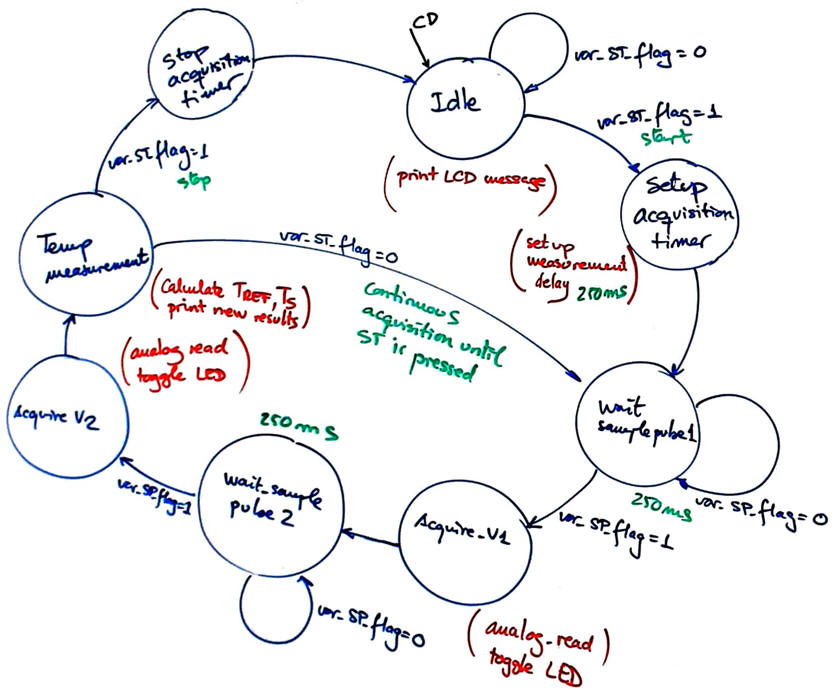 CD
Stop
acquisition
timer
Idle
var_ST_flag = 0
var_ST_flag = 1
start
(print LCD message)
Setup
acquisition
timer
(set up
measurement
delay 250ms)
var_ST_flag=1
stop
Temp
measurement
var_ST_flag=0
(Calculate TREF, TS
print new results)
Continuous
acquisition until
ST is pressed
(analog read
toggle LED)
Acquire V2
wait
sample pulse1
250ms
var_SP_flag = 0
var_SP_flag = 1
250ms
wait_sample
pulse 2
var_SP_flag=1
Acquire_V1
var_SP_flag=0
(analog_read)
toggle LED